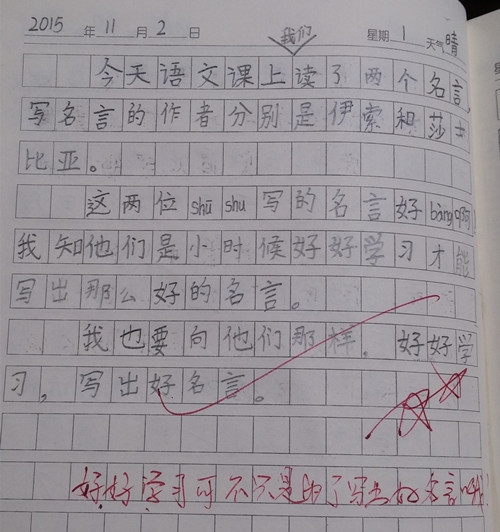 2015 年 11 月 2 日 星期 1 天气 晴
我们
今天语文课上读了两个名言,
写名言的作者分别是伊索和莎士
比亚。
这两位shū shu写的名言好bàng啊!
我知他们是小时候好好学习才能
写出那么好的名言。
我也要向他们那样,好好学
习,写出好名言。
好好学习可不只是为了写出好名言哦!